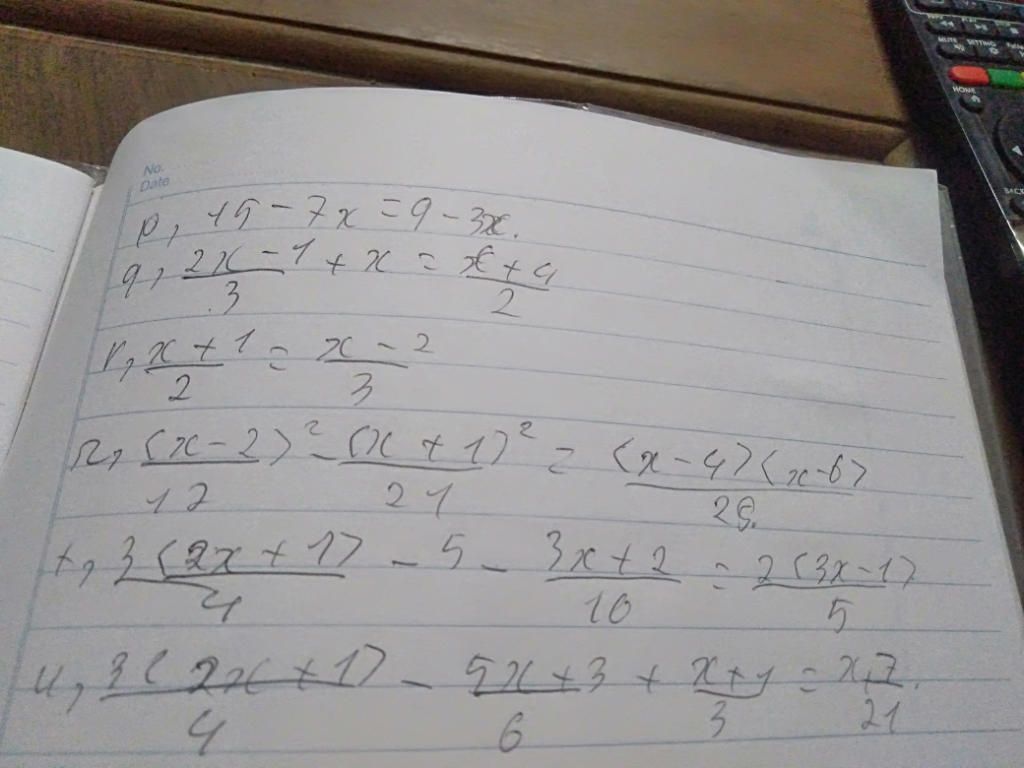 No.
Date
p, 15 - 7x = 9 - 3x.
q, (2x - 1)/3 + x = (x + 4)/2
r, (x + 1)/2 = (x - 2)/3
s, (x - 2)²/12 - (x + 1)²/21 = (x - 4)(x - 6)/28.
t, 3(2x + 1)/4 - 5 - (3x + 2)/10 = 2(3x - 1)/5
u, 3(2x + 1)/4 - (5x + 3)/6 + (x + 1)/3 = (x + 7)/21.
MUTE
SETTING
HOME